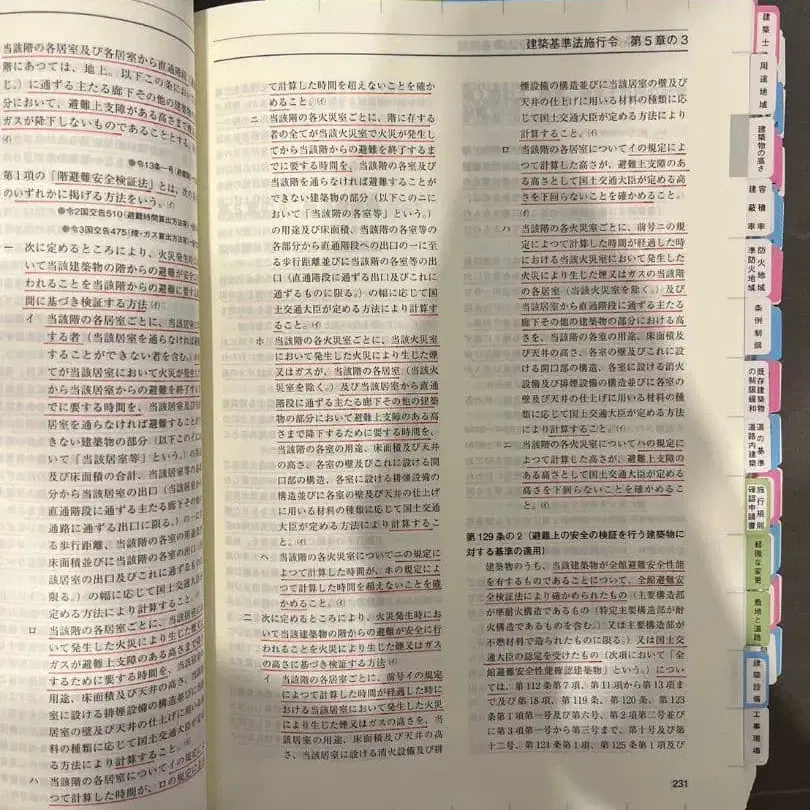 建築基準法施行令 第5章の3
当該階の各居室及び各居室から直通階
階にあつては、地上。以下この条にお
じ。)に通ずる主たる廊下その他の建築の
分において、避難上支障がある高さまで煙
ガスが降下しないものであることとする
(イ)
●令13条一号(避難
第1項の「階避難安全検証法」とは、次の
のいずれかに掲げる方法をいう。(イ)
●令2国交告510(避難時間算出方法等)
●令3国交告475(煙・ガス算出方法等)
一 次に定めるところにより、火災発生
いて当該建築物の階からの避難が安全に
われることを当該階からの避難に要する
間に基づき検証する方法(イ)
イ 当該階の各居室ごとに、当該居室
する者(当該居室を通らなければ避
することができない者を含む。)
てが当該居室において火災が発生し
から当該居室からの避難を終了する
でに要する時間を、当該居室及び
居室を通らなければ避難することが
きない建築物の部分(以下このイに
いて「当該居室等」という。)の
及び床面積の合計、当該居室等の各
分から当該居室の出口(当該居室から
直通階段に通ずる主たる廊下その他
通路に通ずる出口に限る。)の一に
る歩行距離、当該居室等の各室の用途
床面積並びに当該居室の各室の出口
居室の出口及びこれに通ずるもの
限る。)の幅に応じて国土交通大臣が
定める方法により計算すること。(イ)
ロ 当該階の各居室ごとに、当該居室に
って発生した火災により生じた煙又は
ガスが避難上支障のある高さまで降下
するために要する時間を、当該居室の
用途、床面積及び天井の高さ、当該居
室に設ける排煙設備の構造並びに当該
居室の壁及び天井の仕上げに用いる材
料の種類に応じて国土交通大臣が定め
る方法により計算すること。(イ)
ハ 当該階の各居室についてイの規定によ
つて計算した時間が、ロの規定によ
つて計算した時間を超えないことを確か
めること。(イ)
ニ 当該階の各火災室ごとに、階に存する
者の全てが当該火災室で火災が発生し
てから当該階からの避難を終了するま
でに要する時間を、当該階の各室及び
当該階を通らなければ避難することが
できない建築物の部分(以下このニに
おいて「当該階の各室等」という。)
の用途及び床面積、当該階の各室等の
各部分から直通階段への出口の一に至
る歩行距離並びに当該階の各室等の出
口(直通階段に通ずる出口及びこれに
通ずるものに限る。)の幅に応じて国
土交通大臣が定める方法により計算す
ること。(イ)
ホ 当該階の各火災室ごとに、当該火災室
において発生した火災により生じた煙
又はガスが、当該階の各居室(当該火
災室を除く。)及び当該居室から直通
階段に通ずる主たる廊下その他の建築
物の部分において避難上支障のある高
さまで降下するために要する時間を、
当該階の各室の用途、床面積及び天井
の高さ、各室の壁及びこれに設ける開
口部の構造、各室に設ける排煙設備の
構造並びに各室の壁及び天井の仕上げ
に用いる材料の種類に応じて国土交通
大臣が定める方法により計算するこ
と。(イ)
ヘ 当該階の各火災室についてニの規定に
よつて計算した時間が、ホの規定によ
つて計算した時間を超えないことを確
かめること。(イ)
二 次に定めるところにより、火災発生時にお
いて当該建築物の階からの避難が安全に行
われることを火災により生じた煙又はガス
の高さに基づき検証する方法(イ)
イ 当該階の各居室ごとに、前号イの規定
によつて計算した時間が経過した時に
おける当該居室において発生した火災
により生じた煙又はガスの高さを、当
該居室の用途、床面積及び天井の高
さ、当該居室に設ける消火設備及び排
煙設備の構造並びに当該居室の壁及び
天井の仕上げに用いる材料の種類に応
じて国土交通大臣が定める方法により
計算すること。(イ)
ロ 当該階の各居室についてイの規定によ
つて計算した高さが、避難上支障のあ
る高さとして国土交通大臣が定める高
さを下回らないことを確かめること。
(イ)
ハ 当該階の各火災室ごとに、前号ニの規
定によつて計算した時間が経過した時
における当該火災室において発生した
火災により生じた煙又はガスの当該階
の各居室(当該火災室を除く。)及び
当該居室から直通階段に通ずる主たる
廊下その他の建築物の部分における高
さを、当該階の各室の用途、床面積及
び天井の高さ、各室の壁及びこれに設
ける開口部の構造、各室に設ける消火
設備及び排煙設備の構造並びに各室の
壁及び天井の仕上げに用いる材料の種
類に応じて国土交通大臣が定める方法
により計算すること。(イ)
ニ 当該階の各火災室についてハの規定に
よつて計算した高さが、避難上支障の
ある高さとして国土交通大臣が定める
高さを下回らないことを確かめるこ
と。(イ)
第129条の2(避難上の安全の検証を行う建築物に
対する基準の適用)
建築物のうち、当該建築物が全館避難安全性能
を有するものであることについて、全館避難安
全検証法により確かめられたもの(主要構造部
が準耐火構造であるもの(特定主要構造部が耐
火構造であるものを含む。)又は主要構造部が
不燃材料で造られたものに限る。)又は国土交
通大臣の認定を受けたもの(次項において「全
館避難安全性能確認建築物」という。)につい
ては、第112条第7項、第11項から第13項ま
で及び第18項、第119条、第120条、第123
条第1項第一号及び第六号、第2項第二号並び
に第3項第一号から第三号まで、第十号及び第
十二号、第124条第1項、第125条第1項及び
231
建築士
用途地域
建築物の高さ
容積率
建蔽率
防火地域
準防火地域
条例制限
既存建築物
の制限緩和
道の基準
道路内建築
施行規則
確認申請書
軽微な変更
敷地と道路
建築設備
工事現場